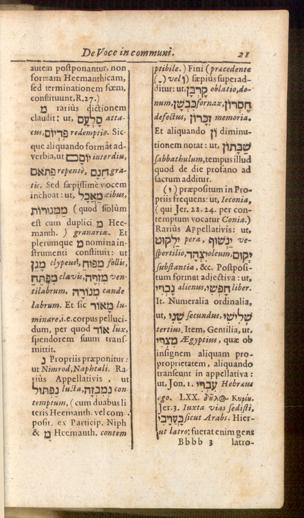 De Voce in communi. 21
autem postponantur, non
formam Heemanthicam,
sed terminationem fœm,
constituunt, R, 27.)
מ rarius dictionem
claudit: ut, סלעם, ut: atta-
cus, פריום redemptio. Sic-
que aliquando format ad-
verbia, ut יומם interdiu,
פתאם repentè, חנם gra-
tis. Sed sæpissimè vocem
inchoat: ut, מאבל cibus,
ממגורות (quod solùm
est cum duplici מ Hee-
manth.) granaria. Et
plerumque מ nomina in-
strumenti constituit: ut
מגן clypeus, מפוח follis,
מפתח clavis, מזרה ven-
tilabrum, מנורה cande
labrum. Et sic מאור lu-
minare, i.e. corpus pelluci-
dum, per quod אור lux,
splendorem suum trans-
mittit.
נ Propriis præponitur:
ut Nimrod, Naphtali. Ra-
riùs Appellativis, ut
נפתול lucta, נמבזה con
temptum, (cum duabus li
teris Heemanth. vel com
posit. ex Particip. Niph
& מ Heemanth. contem
ptibile.) Fini (præcedente
vel ן) sæpius superad-
ditur: ut, קרבן oblatio, do-
num, כבשן fornax, חסרון
defectus, זכרון memoria.
Et aliquando ון diminu-
tionem notat: ut, שבתון
sabbathulum, tempus illud
quod de die profano ad
sacrum additur.
(י) præpositum in Pro-
priis frequens: ut, Ieconia,
(qui Jer. 22. 24. per con-
temptum vocatur Conia.)
Rarius Appellativis: ut,
ילקוט pera, ינשוף ve-
spertilio, יצהר oleum, יקום
substantia, &c. Postposi-
tum format adjectiva: ut,
נכרי alienus, חפשי liber.
It. Numeralia ordinalia,
ut, שני secundus, שלישי
tertius, Item, Gentilia, ut,
מצרי Ægyptius, quæ ob
insignem aliquam pro-
proprietatem, aliquando
transeunt in appellativa:
ut, Jon. 1. עברי Hebræus
ego. LXX. δοῦλος Κυρίου.
Jer. 3. Iuxta vias sedisti,
כערבי sicut Arabs. Hier-
ut latro: fuerat enim gens
Bbbb 3 latro-